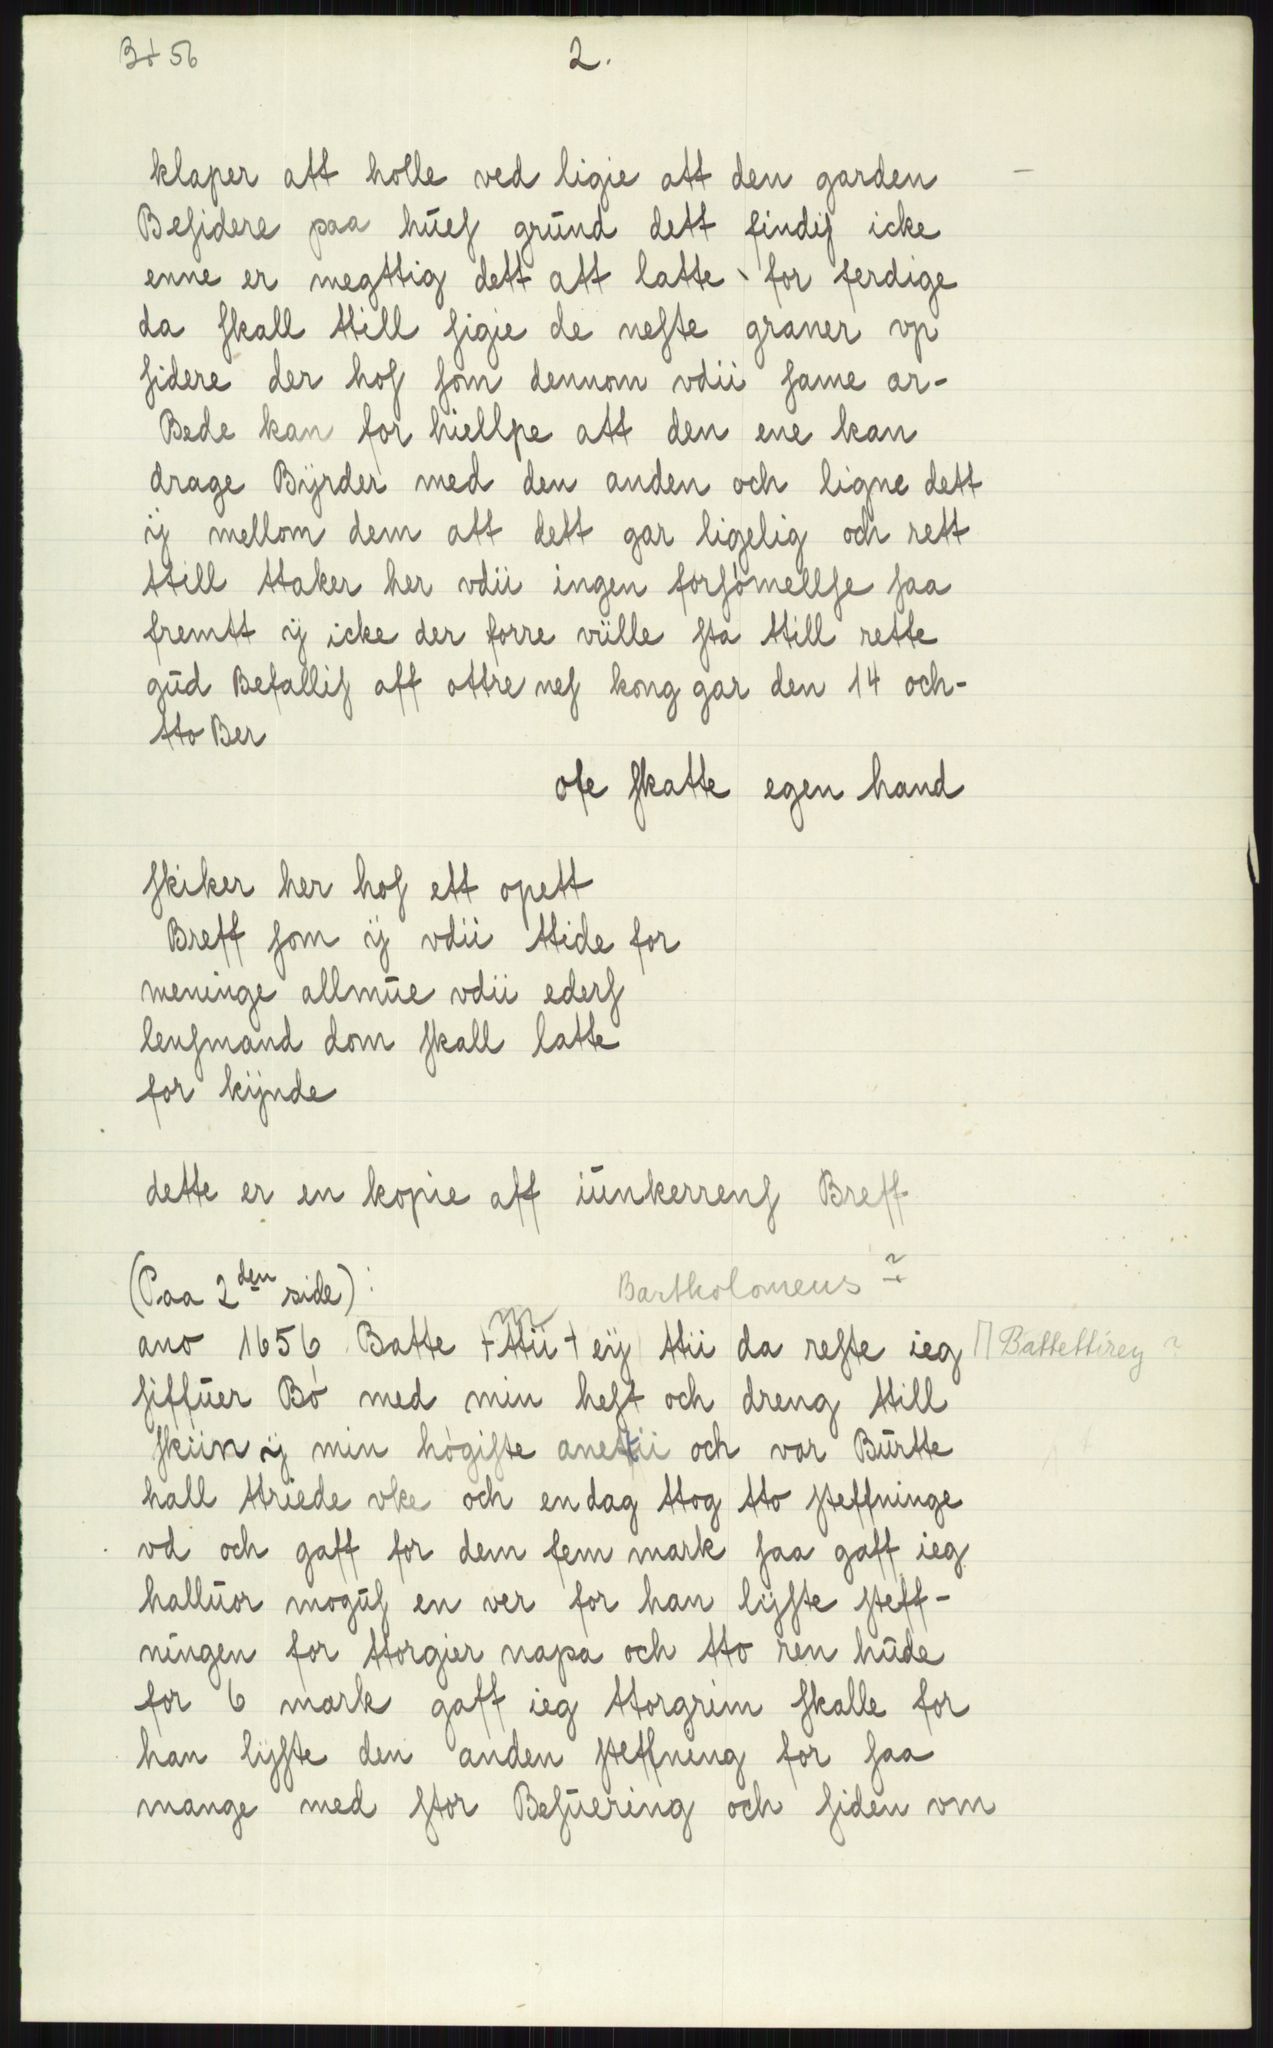 3+56
2.
klaper att holle ved ligie att den garden
Besidere paa hűes grűnd dett findis icke
enne er megttig dett att latte for ferdige
da skall ttill sigie de neste graner vp
sidere der hos som dennom vdii same ar-
Bede kan for hiellpe att den ene kan
drage Bÿrder med den anden och ligne dett
ÿ mellom dem att dett gar ligelig och rett
ttill ttaker her vdii ingen forsömellse saa
fremtt ÿ icke der forre viille sta ttill rette
gűd Befallis aff ottre nes kong gar den 14 och-
tto Ber
ofe skatte egen hand
skiker her hos ett opett
Breff som ÿ vdii ttide for
meninge allműe vdii eders
lensmand dom skall latte
for kÿnde
dette er en kopie aff iűnkerrens Breff
(Paa 2den side):
Bartholomeus ?
ano 1656 Batte + ttii + eÿ ttii da reste ieg ∏ Battettirey ?
siffűer Bö med min hest och dreng ttill
skiin ÿ min högiste anettii och var Bűrtte
hall ttriede vke och en dag ttog tto steffninge
vd och gaff for dem fem mark saa gaff ieg
hallűor mogűs en ver for han lÿste steff-
ningen for ttorgier napa och tto ren hűde
for 6 mark gaff ieg ttorgrim skalle for
han lÿste den anden steffning for saa
mange med stor Besűering och siden vm